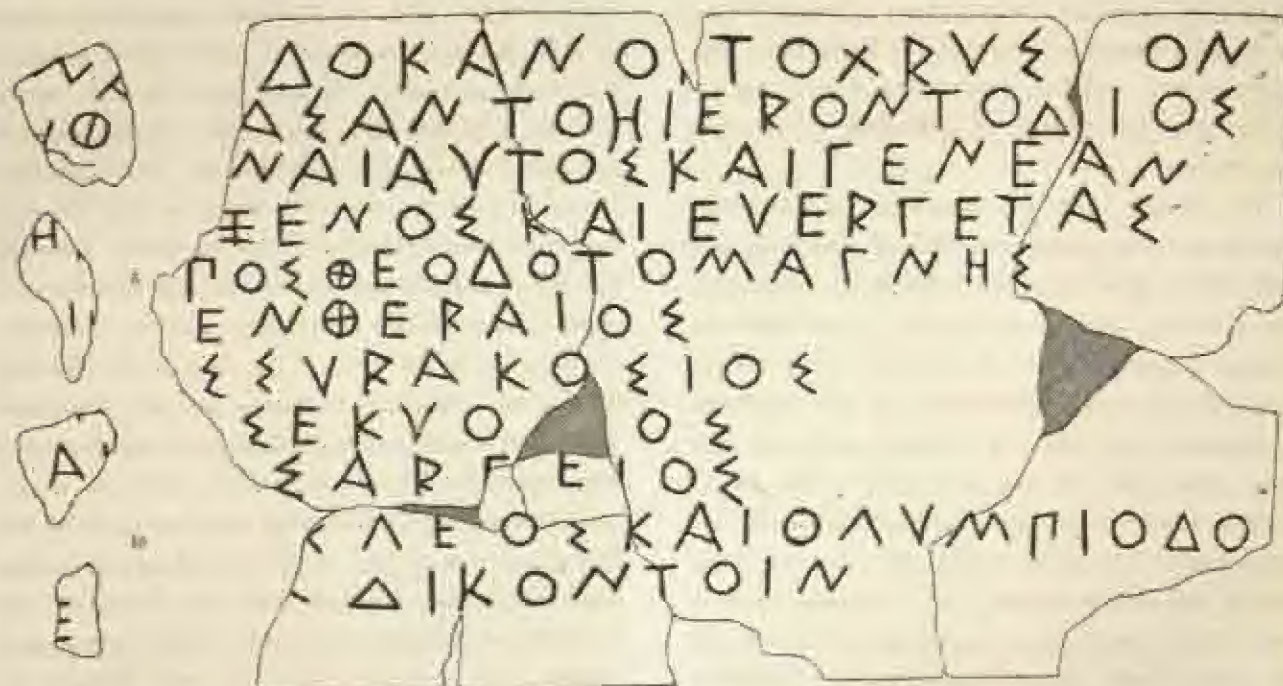 Θ
Η
Ι
Α
Ε
ΔΟΚΑΝΟΙΤΟΧΡΥΣ ΟΝ
ΑΣΑΝΤΟΗΙΕΡΟΝΤΟΔΙΟΣ
ΝΑΙΑΥΤΟΣΚΑΙΓΕΝΕΑΝ
ΞΕΝΟΣΚΑΙΕΥΕΡΓΕΤΑΣ
ΓΟΣΘΕΟΔΟΤΟΜΑΓΝΗΣ
ΕΝΘΕΡΑΙΟΣ
ΣΣΥΡΑΚΟΣΙΟΣ
ΣΕΚΥΟ ΟΣ
ΣΑΡΓΕΙΟΣ
10
ΚΛΕΟΣΚΑΙΟΛΥΜΠΙΟΔΟ
ΔΙΚΟΝΤΟΙΝ